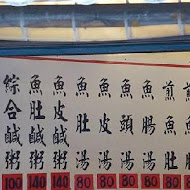 煎魚
煎魚肚 80
魚腸湯 80
魚頭湯 80
魚皮湯 80
魚肚湯 80
魚皮鹹粥 140
魚肚鹹粥 140
綜合鹹粥 100